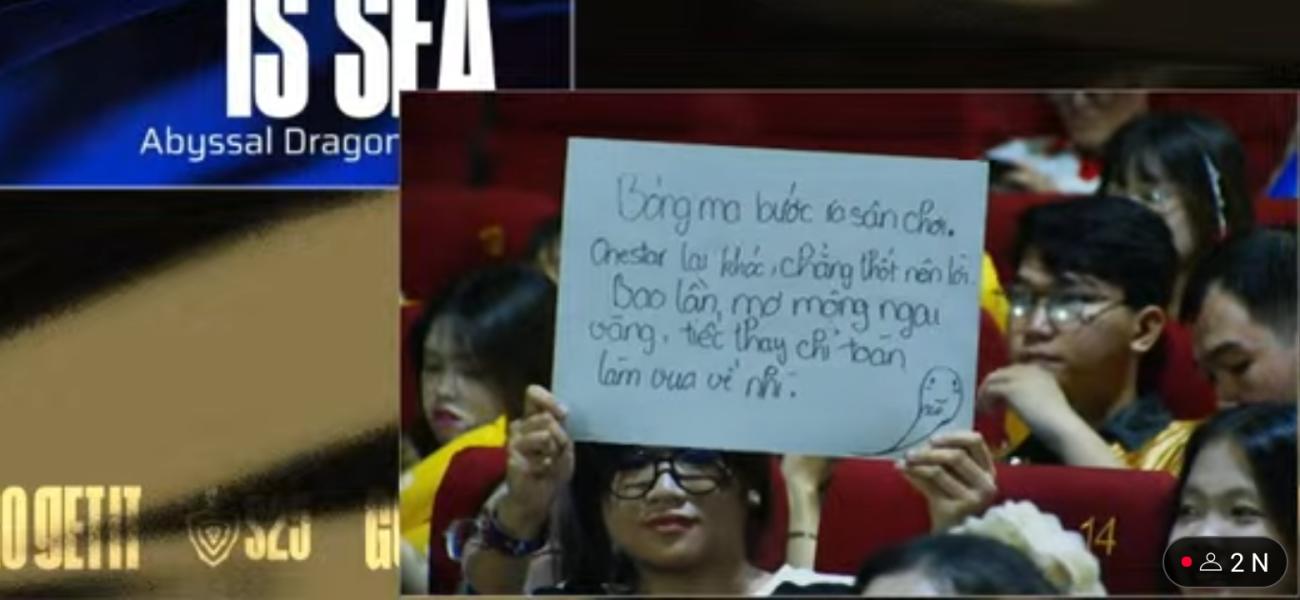 IS SEA
Abyssal Dragon
Bóng ma bước ra sân chơi.
Onestar lại khác, chẳng thốt nên lời.
Bao lần, mơ mông ngai
vàng, tiếc thay chỉ toàn
làm vua về nhì.
GET IT
S25
14
2 N